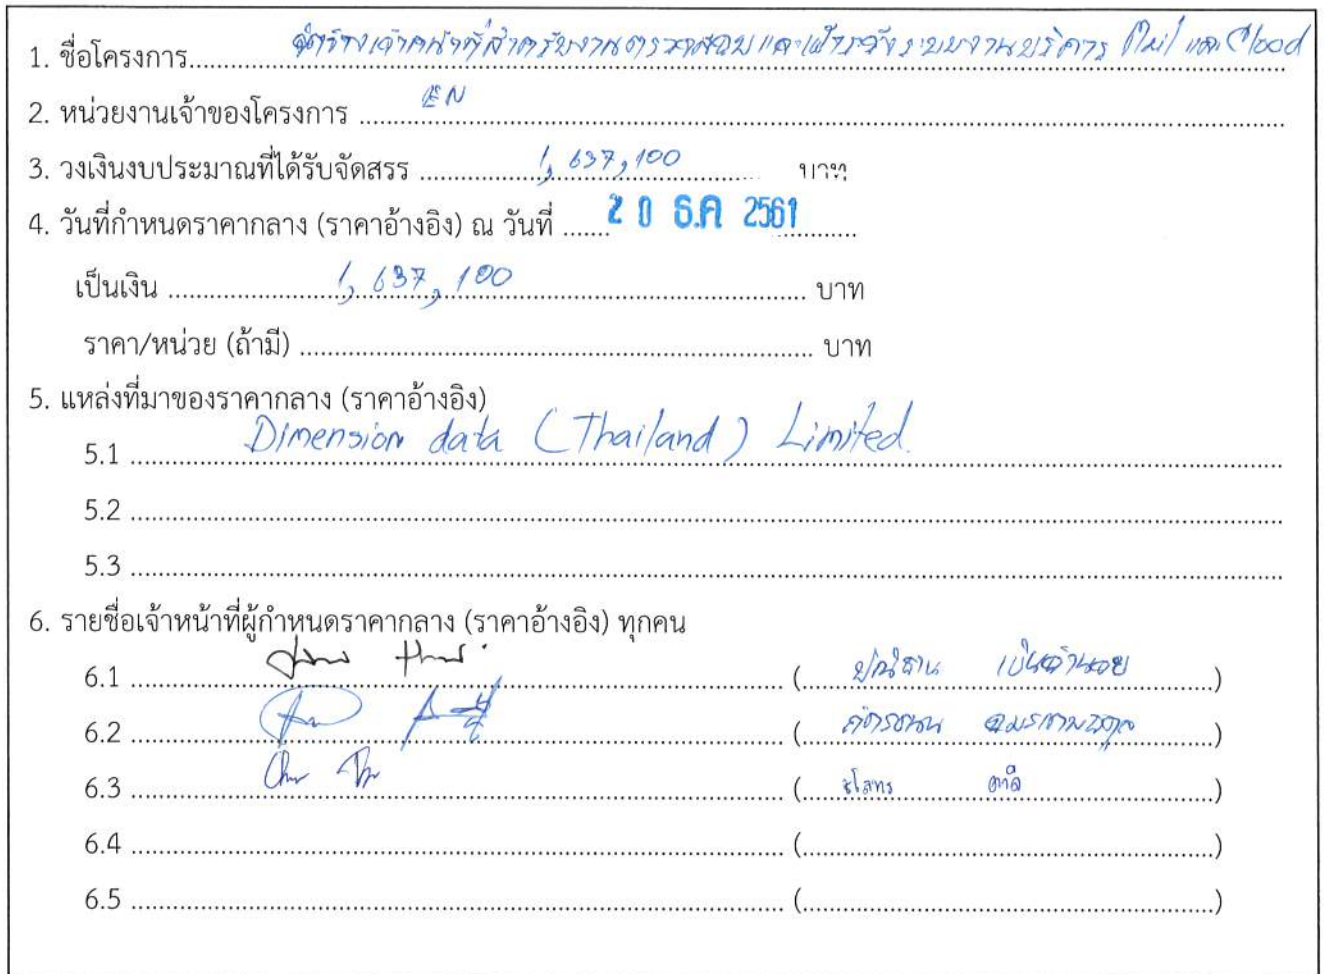 1. ชื่อโครงการ จัดจ้างเจ้าหน้าที่สำหรับงานตรวจสอบและเฝ้าระวังระบบงานบริการ Mail และ Cloud
2. หน่วยงานเจ้าของโครงการ EN
3. วงเงินงบประมาณที่ได้รับจัดสรร 1,637,100 บาท
4. วันที่กำหนดราคากลาง (ราคาอ้างอิง) ณ วันที่ 20 ธ.ค 2561
เป็นเงิน 1,637,100 บาท
ราคา/หน่วย (ถ้ามี) บาท
5. แหล่งที่มาของราคากลาง (ราคาอ้างอิง)
5.1 Dimension data (Thailand) Limited.
5.2
5.3
6. รายชื่อเจ้าหน้าที่ผู้กำหนดราคากลาง (ราคาอ้างอิง) ทุกคน
6.1 ( )
6.2 ( )
6.3 ( )
6.4 ( )
6.5 ( )